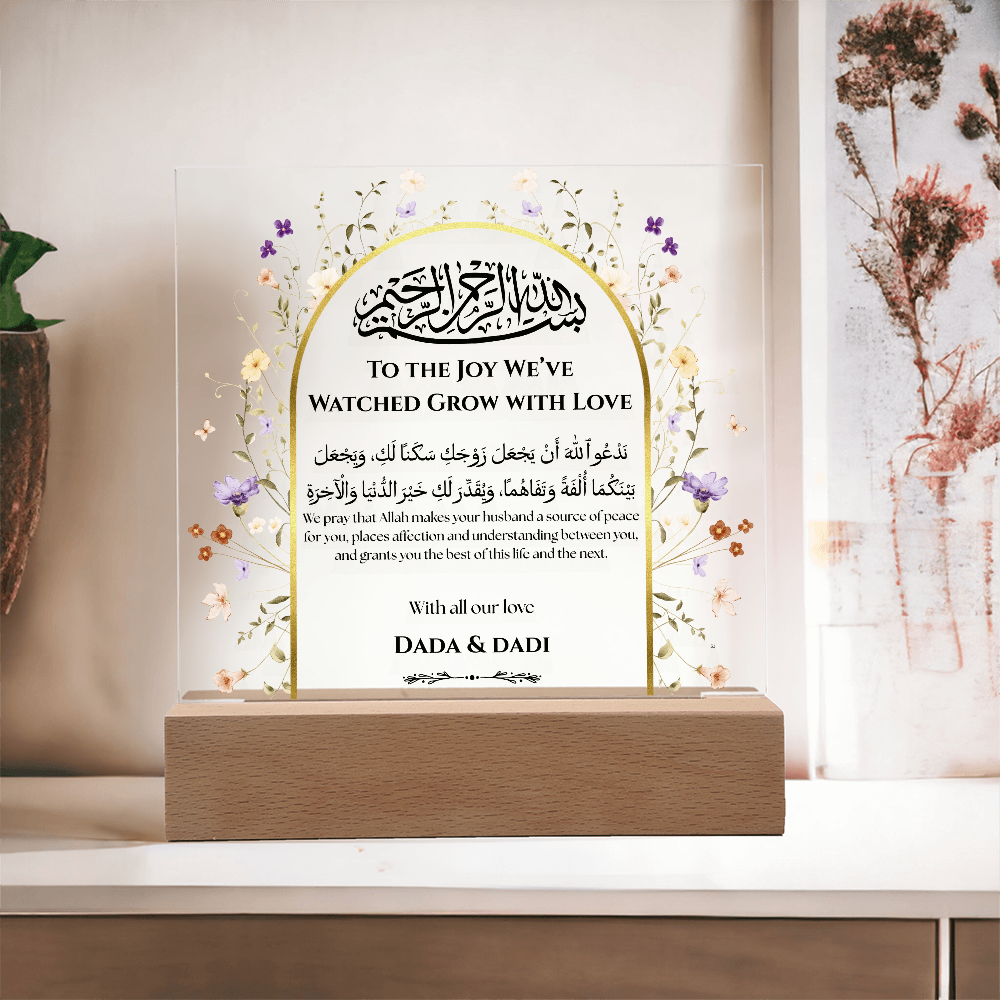 بسم الله الرحمن الرحيم
To the Joy We've
Watched Grow with Love
نَدْعُو ٱللّٰهَ أَنْ يَجْعَلَ زَوْجَكِ سَكَنًا لَكِ، وَيَجْعَلَ
بَيْنَكُمَا أُلْفَةً وَتَفَاهُمًا، وَيُقَدِّرَ لَكِ خَيْرَ الدُّنْيَا وَالْآخِرَةِ
We pray that Allah makes your husband a source of peace
for you, places affection and understanding between you,
and grants you the best of this life and the next.
With all our love
Dada & dadi